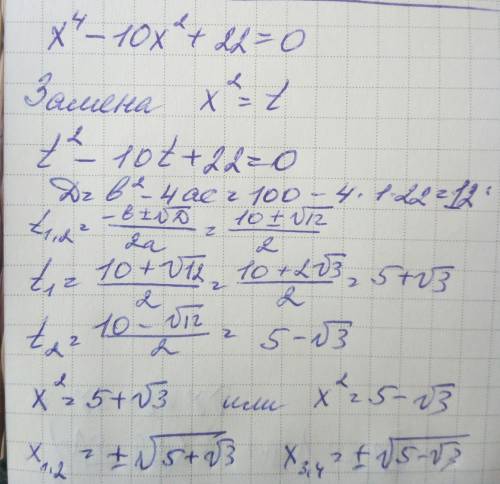 x⁴ − 10x² + 22 = 0
Замена x² = t
t² − 10t + 22 = 0
D = b² − 4ac = 100 − 4 · 1 · 22 = 12
t₁,₂ = (−b ± √D)/2a = (10 ± √12)/2
t₁ = (10 + √12)/2 = (10 + 2√3)/2 = 5 + √3
t₂ = (10 − √12)/2 = 5 − √3
x² = 5 + √3 или x² = 5 − √3
x₁,₂ = ± √(5 + √3) x₃,₄ = ± √(5 − √3)